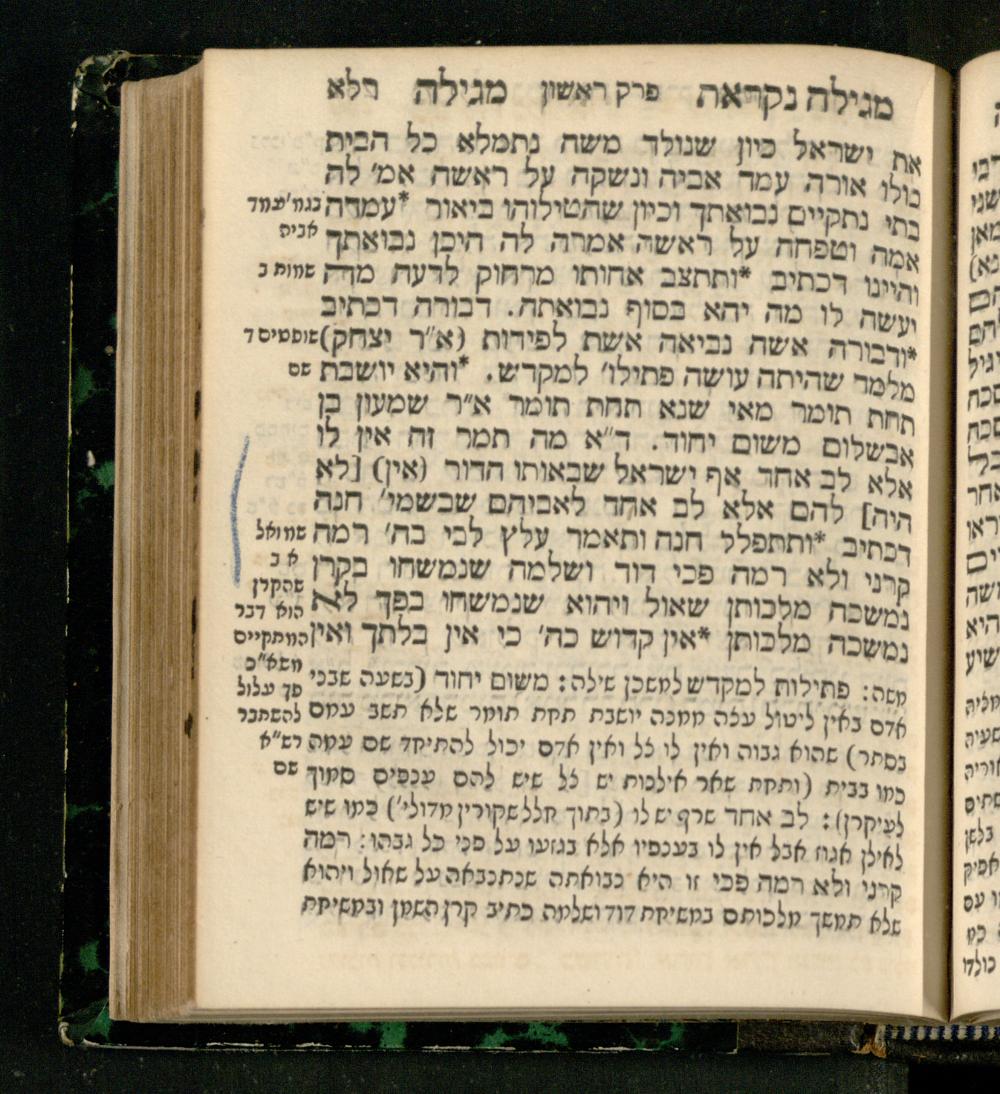 מגילה נקראת פרק ראשון מגילה רלא
את ישראל כיון שנולד משה נתמלא כל הבית
כולו אורה עמד אביה ונשקה על ראשה אמ׳ לה
בתי נתקיים נבואתך וכיון שהטילוהו ביאור *עמדה
אמה וטפחה על ראשה אמרה לה היכן נבואתך
והיינו דכתיב *ותתצב אחותו מרחוק לדעת מה
יעשה לו מה יהא בסוף נבואתה. דבורה דכתיב
*ודבורה אשה נביאה אשת לפידות (א״ר יצחק)
מלמד שהיתה עושה פתילו׳ למקדש. *והיא יושבת
תחת תומר מאי שנא תחת תומר א״ר שמעון בן
אבשלום משום יחוד. ד״א מה תמר זה אין לו
אלא לב אחד אף ישראל שבאותו הדור (אין) [לא
היה] להם אלא לב אחד לאביהם שבשמי׳ חנה
דכתיב *ותתפלל חנה ותאמר עלץ לבי בה׳ רמה
קרני ולא רמה פכי דוד ושלמה שנמשחו בקרן
נמשכה מלכותן שאול ויהוא שנמשחו בפך לא
נמשכה מלכותן *אין קדוש כה׳ כי אין בלתך ואין
משה: פתילות למקדש למשכן שילה: משום יחוד (בשעה שבני
אדם באין ליטול עצה ממנה יושבת תחת תומר שלא תשב עמם
בסתר) שהוא גבוה ואין לו צל ואין אדם יכול להתיחד שם עמה
כמו בבית (ותחת שאר אילנות יש צל שיש להם ענפים סמוך
לעיקרן): לב אחד שרף יש לו (בתוך חלל שקורין מדולי׳) כמו שיש
לאילן אגוז אבל אין לו בענפיו אלא בגזעו על פני כל גבהו: רמה
קרני ולא רמה פכי זו היא נבואתה שנתנבאה על שאול ויהוא
שלא תמשך מלכותם במשיחת דוד ושלמה כתיב קרן השמן ובמשיחת
בגמ׳ עמד
אביה
שמות ב
שופטים ד
שם
שמואל
א ב
שהקרן
הוא דבר
המתקיים
משא״כ
פך עלול
להשתבר
רש״א
שם